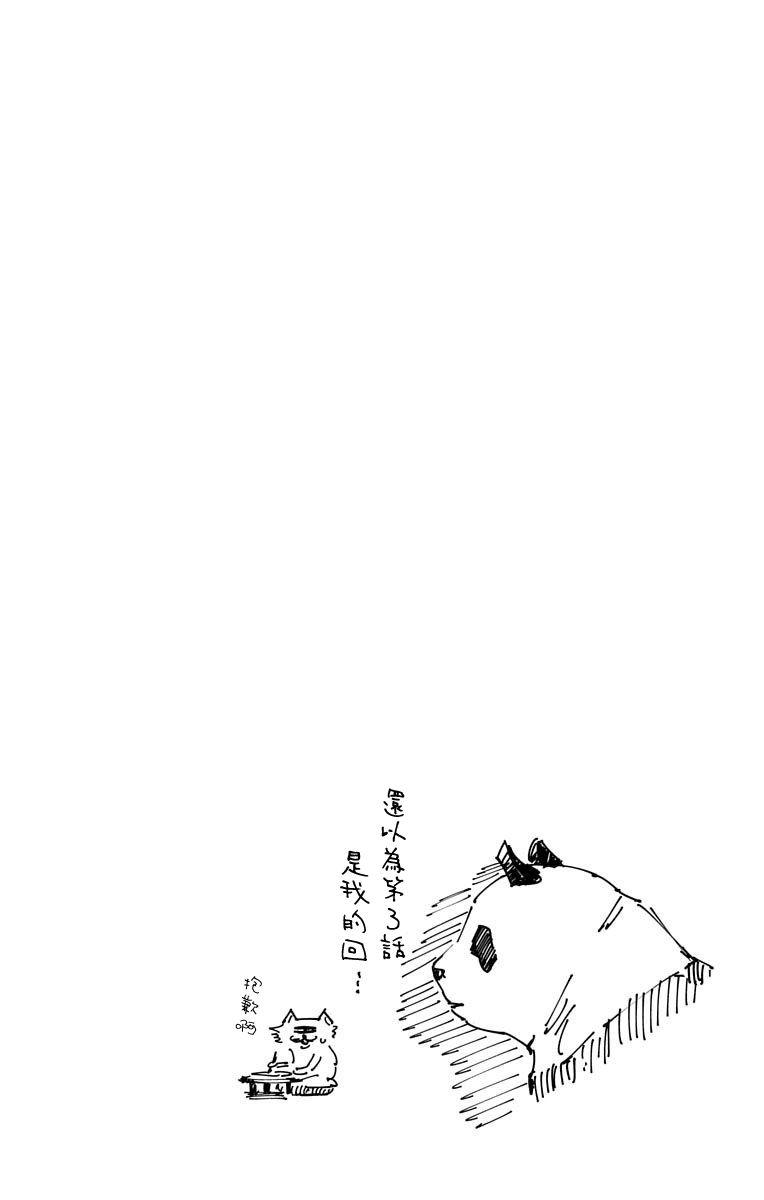 還以為第3話
是我的回…
抱歉啊